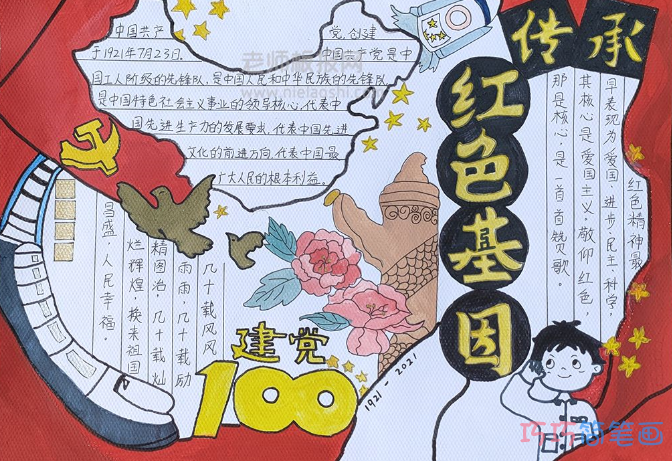 传承
红色基因
中国共产党,创建
于1921年7月23日. 中国共产党是中
国工人阶级的先锋队,是中国人民和中华民族的先锋队,
是中国特色社会主义事业的领导核心,代表中
国先进生产力的发展要求,代表中国先进
文化的前进方向,代表中国最
广大人民的根本利益。
老师板报网
www.nielagshi.com
红色精神最
早表现为爱国、进步、民主、科学,
其核心是爱国主义。敬仰红色,
那是核心,是一首首赞歌。
几十载风风
雨雨,几十载励
精图治,几十载灿
烂辉煌,换来祖国
昌盛,人民幸福。
建党
100
1921-2021
巧巧简笔画